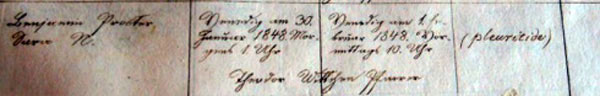 Benjamin Procter,
Baron N.
Venedig am 30.
Januar 1848. Mor-
gens 1 Uhr
Venedig am 1. Fe-
bruar 1848. Vor-
mittags 10. Uhr
(pleuritide)
Theodor Wittchen Pfarrer